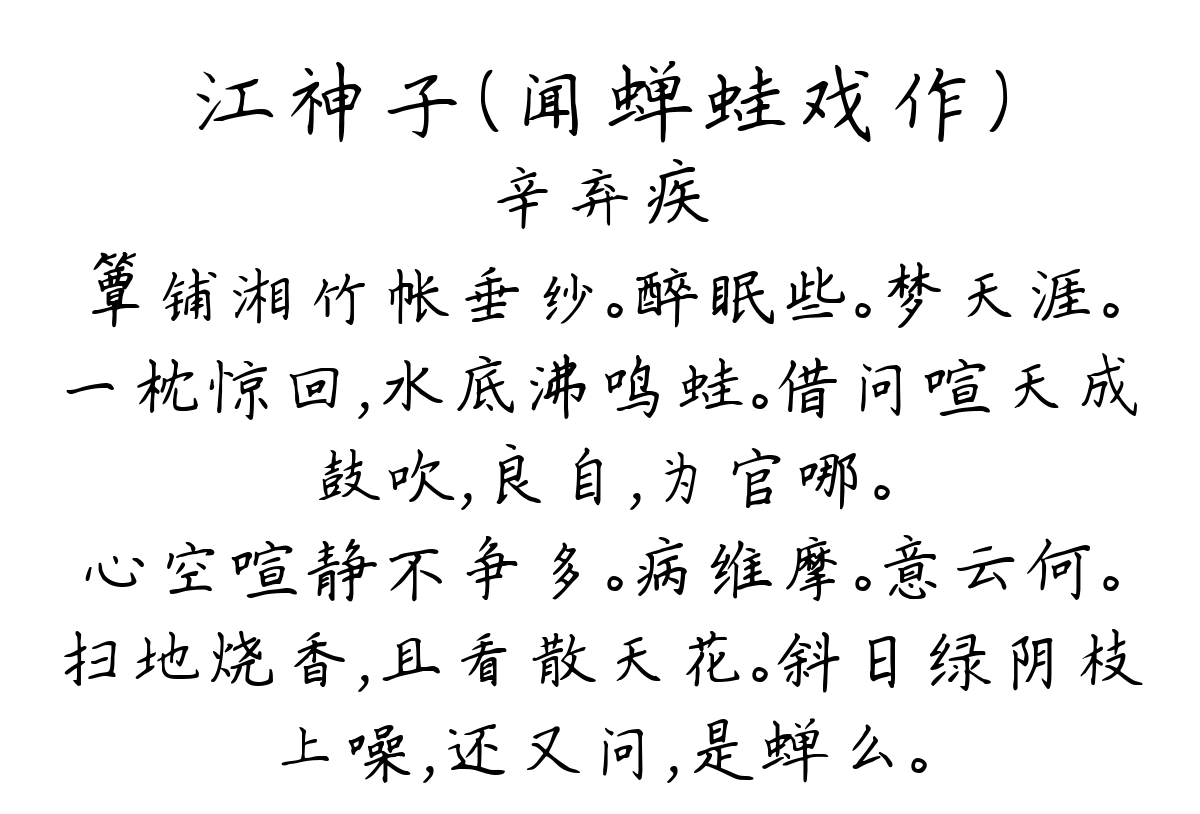 江神子(闻蝉蛙戏作)
辛弃疾
簟铺湘竹帐垂纱。醉眠些。梦天涯。
一枕惊回,水底沸鸣蛙。借问喧天成
鼓吹,良自,为官哪。
心空喧静不争多。病维摩。意云何。
扫地烧香,且看散天花。斜日绿阴枝
上噪,还又问,是蝉么。